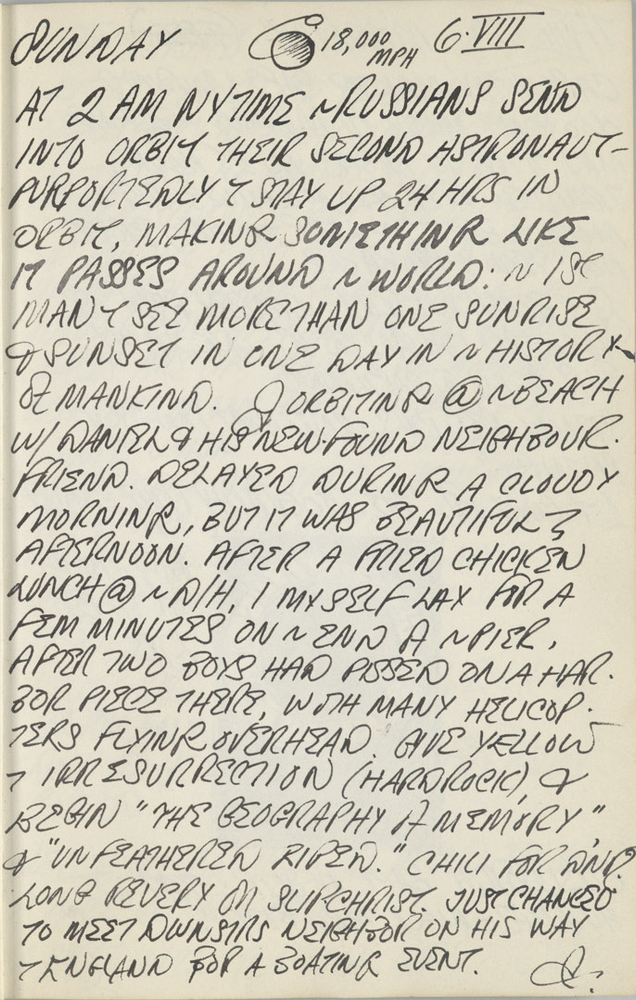 SUNDAY 18,000 MPH 6·VIII
AT 2 AM NYTIME ~ RUSSIANS SEND
INTO ORBIT THEIR SECOND ASTRONAUT—
PURPORTEDLY T STAY UP 24 HRS IN
ORBIT, MAKING SOMETHING LIKE
17 PASSES AROUND ~ WORLD: ~ 1ST
MAN T SEE MORE THAN ONE SUNRISE
& SUNSET IN ONE DAY IN ~ HISTORY
OF MANKIND. ORBITING @ ~ BEACH
W/ DANIEL & HIS NEW·FOUND NEIGHBOUR·
FRIEND. DELAYED DURING A CLOUDY
MORNING, BUT IT WAS BEAUTIFUL
AFTERNOON. AFTER A FRIED CHICKEN
LUNCH @ ~ D/H, I MYSELF LAX FOR A
FEW MINUTES ON ~ END OF ~ PIER,
AFTER TWO BOYS HAD PISSED ON A HAR·
BOR PIECE THERE, WITH MANY HELICOP·
TERS FLYING OVERHEAD. GIVE YELLOW
T IRRESURRECTION (HARDROCK), &
BEGIN "THE GEOGRAPHY OF MEMORY"
& "UNFEATHERED RIPED." CHILI FOR DNR.
LONG REVERY ON SLIPCHRIST. JUST CHANCED
TO MEET DWNSTRS NEIGHBOR ON HIS WAY
T ENGLAND FOR A BOATING EVENT.